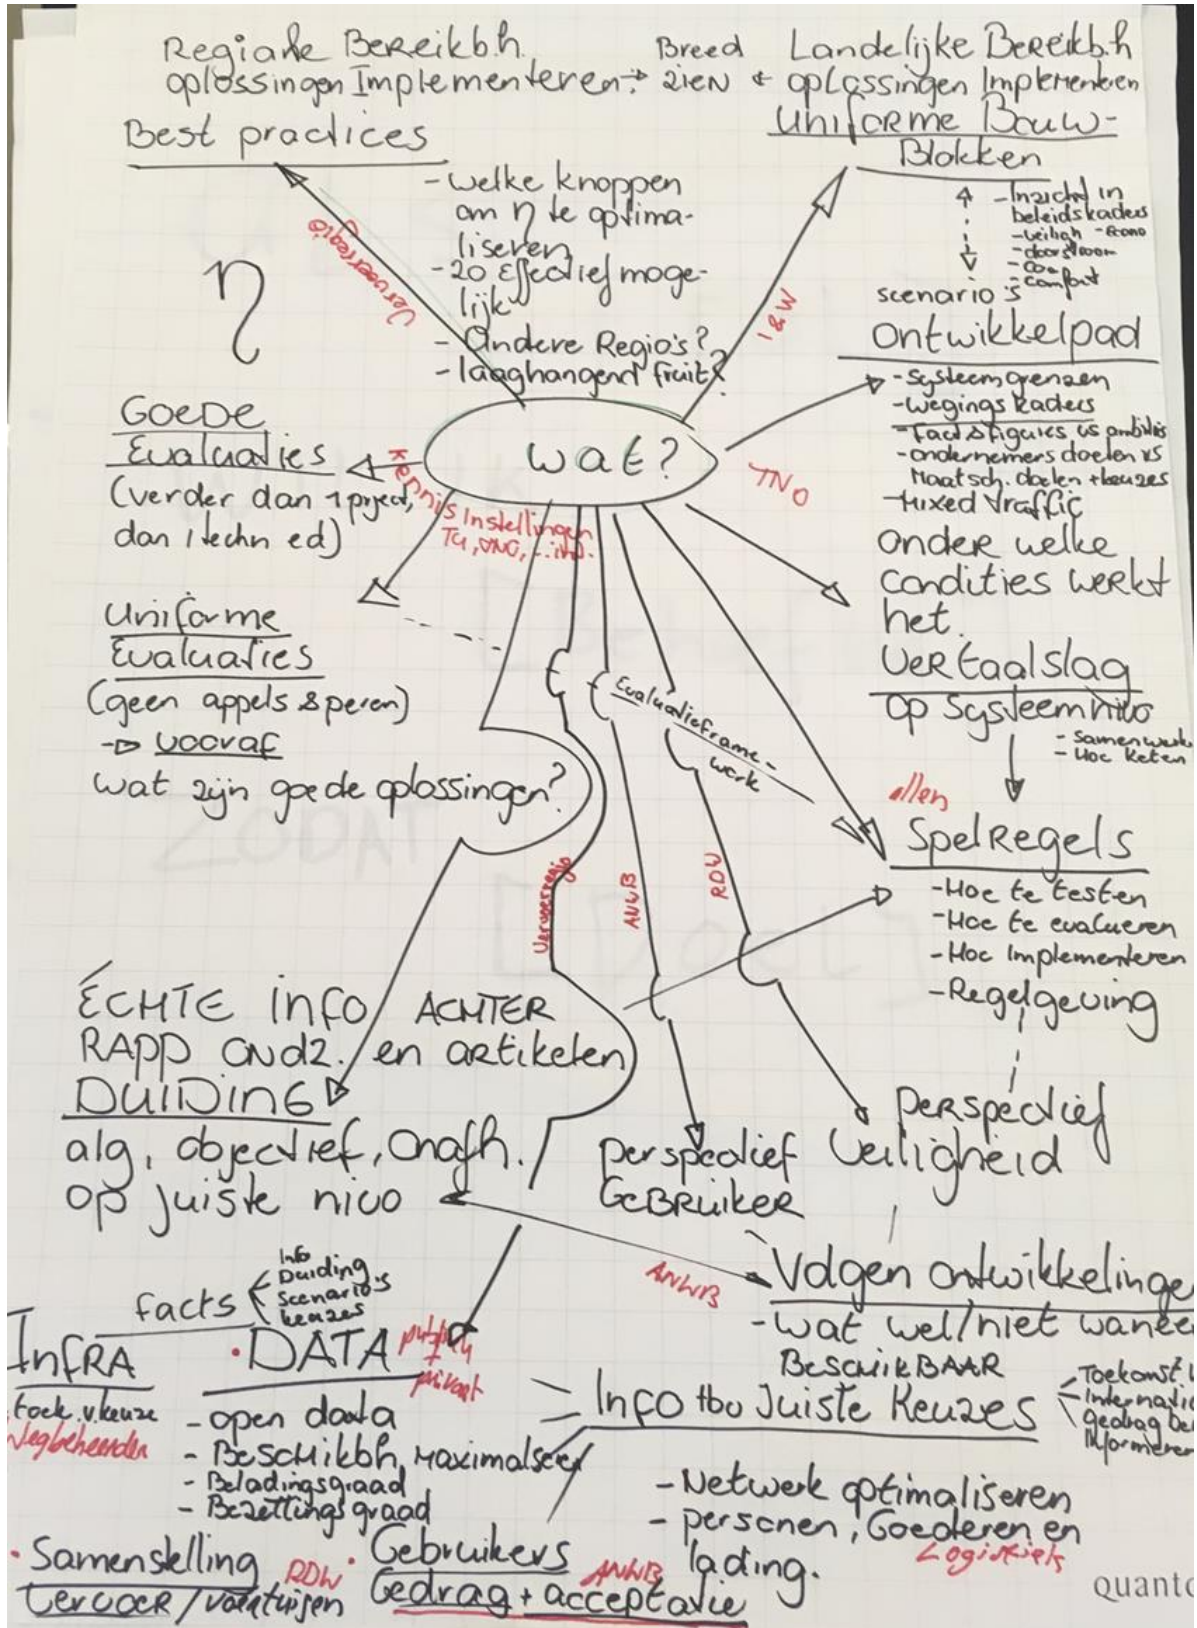 Regionale Bereikb.h.
oplossingen Implementeren →
Breed
zien +
Landelijke Bereikb.h
oplossingen Implementeren
Uniforme Bouw-
Blokken
Best practices
- welke knoppen
om η te optima-
liseren
- zo effectief moge-
lijk
- Andere Regio's?
- laaghangend fruit?
Vervoerregio
η
I&W
- Inzicht in
beleidskaders
- veiligh - Econo
- doorstroom
- CO2
- comfort
scenario's
Ontwikkelpad
- Systeemgrenzen
- Wegings kaders
- Facts & figures vs ambities
- ondernemers doelen vs
Maatsch. doelen + keuzes
- Mixed traffic
TNO
wat?
GOEDE
Evaluaties
(verder dan 1 project,
dan 1 techn ed)
Kennis Instellingen
TU, TNO, ... ind.
onder welke
condities werkt
het.
Vertaalslag
op Systeemnivo
- Samenwerk
- Hoe keten
Uniforme
Evaluaties
(geen appels & peren)
→ vooraf
wat zijn goede oplossingen?
Evaluatieframe-
work
allen
SpelRegels
- Hoe te testen
- Hoe te evalueren
- Hoe Implementeren
- Regelgeving
Vervoerregio
ANWB
RDW
ÉCHTE info ACHTER
RAPP ONDZ. en artikelen
DUIDING
alg, objectief, onafh.
op juiste nivo
perspectief
GEBRUIKER
perspectief
Veiligheid
ANWB
Volgen ontwikkelingen
- wat wel/niet wanneer
BESCHIKBAAR
facts
Info
Duiding
Scenario's
keuzes
INFRA
toek. v. keuze
Wegbeheerder
• DATA
publiek
+
privaat
- open data
- Beschikbh. Maximaliseer
- Beladingsgraad
- Bezettingsgraad
Info tbv Juiste Keuzes
- Toekomst
- Internatio
Gedrag be
Informeren
- Netwerk optimaliseren
- personen, Goederen en
lading.
Logistiek
• Samenstelling
Vervoer / voertuigen
RDW
• Gebruikers
Gedrag + acceptatie
ANWB
quanto